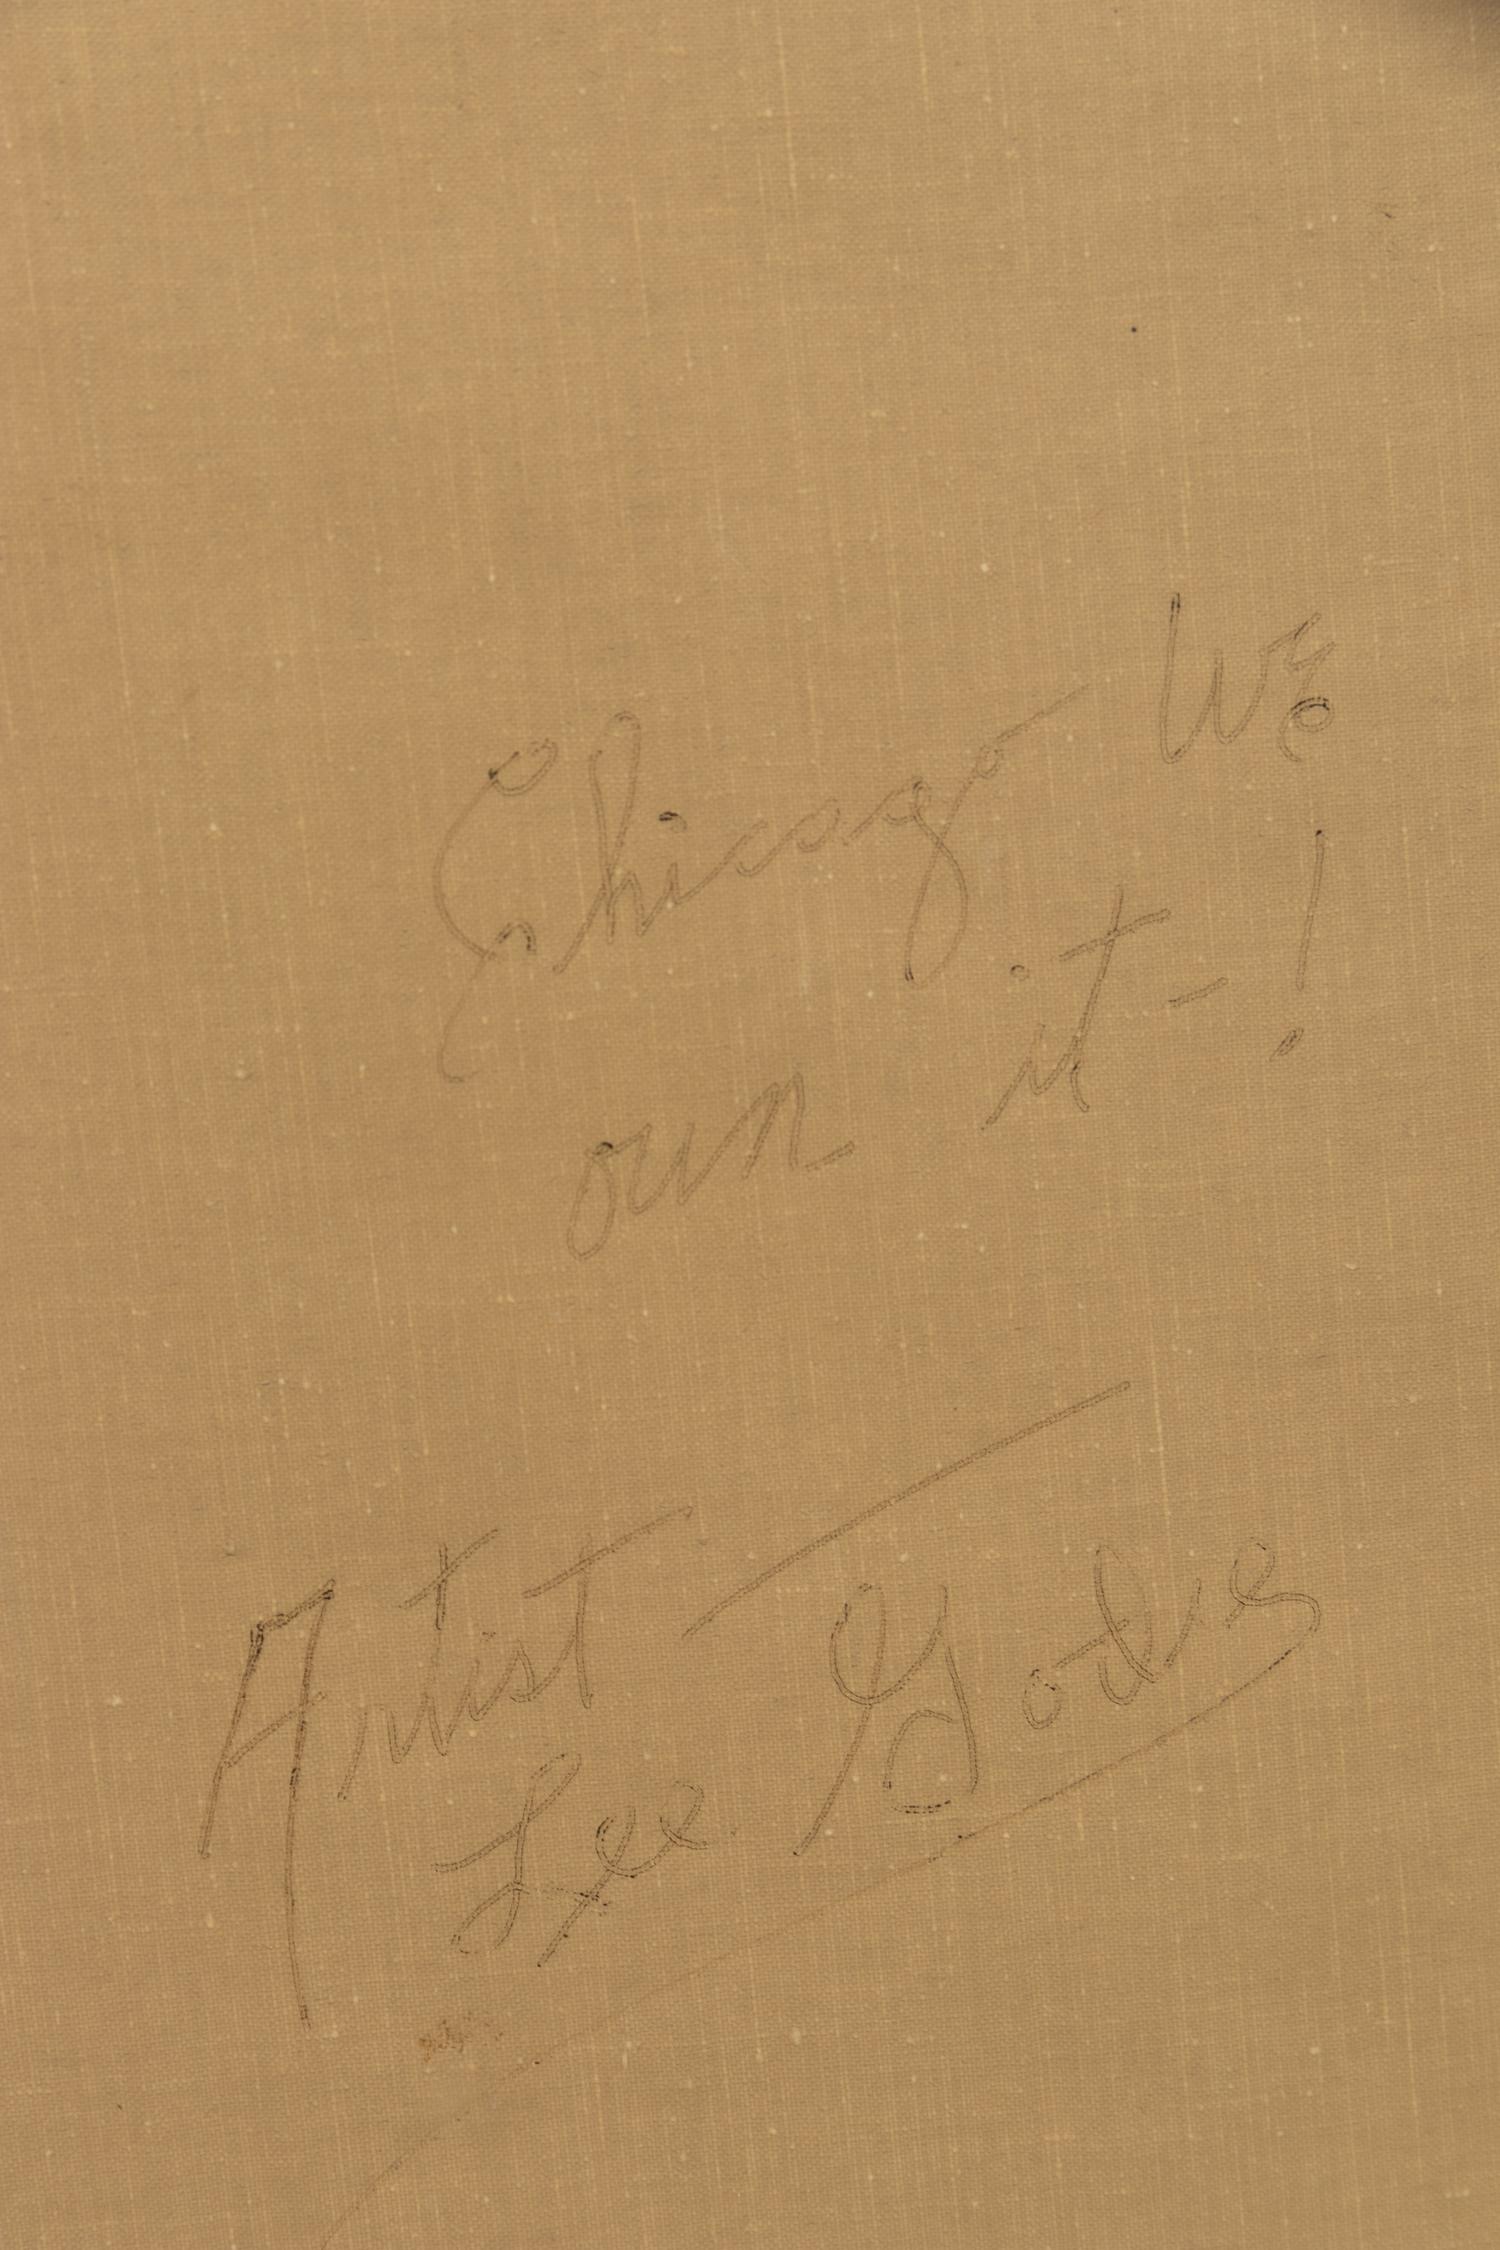 Chicago We
own it-!
Artist —
Lee Godie